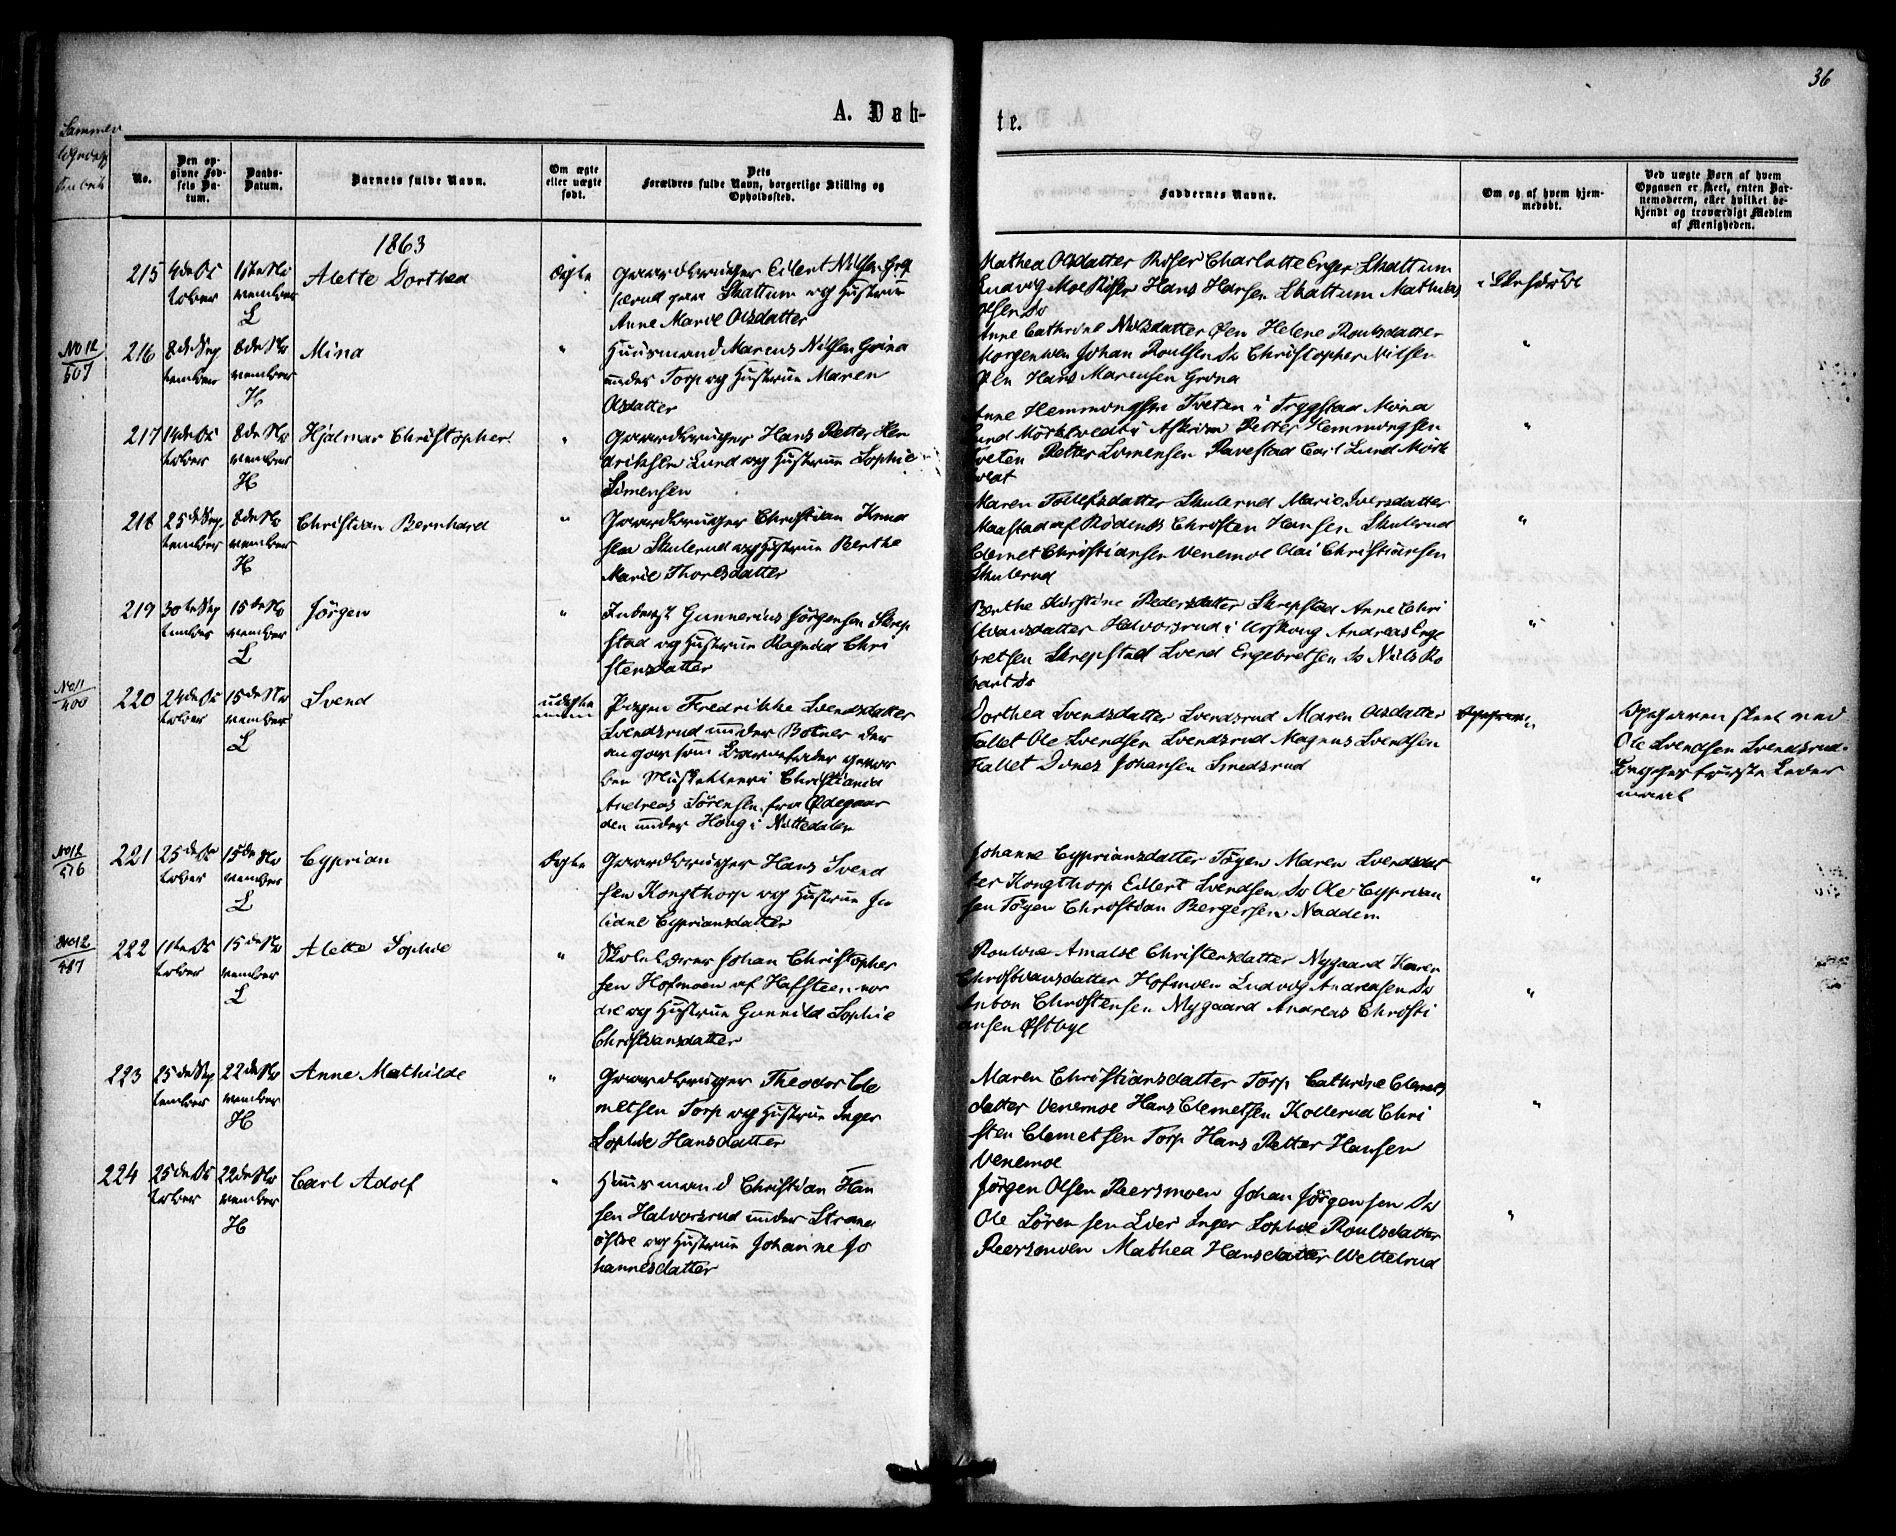 36
A. Døb-
te.
No.
Den op-
givne Fød-
sels Da-
tum.
Daabs-
Datum.
Barnets fulde Navn.
Om ægte
eller uægte
født.
Dets
Forældres fulde Navn, borgerlige Stilling og
Opholdssted.
Faddernes Navne.
Om og af hvem hjem-
medøbt.
Ved uægte Børn af hvem
Opgaven er skeet, enten Bar-
nemoderen, eller hvilket be-
kjendt og troværdigt Medlem
af Menigheden.
1863
215
4de Oc
tober
1ste No
vember
L
Alette Dorthea
Ægte
Gaardbruger Eilert Nilsen
Skattum og Hustrue
Anne Marie Olsdatter
Mathea Olsdatter Riser Charlotte Enger Skattum
Ludvig Moe Riser Hans Hansen Skattum Mathias
Olsen Do
No 12
507
216
8de Sep
tember
8de No
vember
H
Mina
"
Huusmand Marcus Nilsen Grina
under Torp og Hustrue Maren
Olsdatter
Anne Cathrine Nilsdatter Øen Helene Roulsdatter
Morgenwen Johan Roulsen Do Christopher Nilsen
Øen Hans Marensen Grina
"
217
14de Oc
tober
8de No
vember
H
Hjalmar Christopher
"
Gaardbruger Hans Petter Hen
driksen Lund og Hustrue Sophie
Simensen
Anne Hemmingsen Tveten i Trygstad Mina
Lund Mørkved i Askim Petter Hemmingsen
Tveten Petter Simensen Ravestad Carl Lund Mørk
ved
"
218
25de Sep
tember
8de No
vember
H
Christian Bernhard
"
Gaardbruger Christian Knud
sen Skulerud og Hustrue Berthe
Marie Thorlsdatter
Maren Tollefsdatter Skulerud Marie Iversdatter
Maastad af Rødenes Christen Hansen Skulerud
Clemet Christiansen Venemoe Olai Christiansen
Skulerud
"
219
30te Sep
tember
15de No
vember
L
Jørgen
"
Inderst Gunnerius Jørgensen Skrep
stad og Hustrue Ragnild Chri
stensdatter
Berthe Kirstine Pedersdatter Skrepstad Anne Chri
stiansdatter Halvorsrud i Urskoug Andreas Enge
bretsen Skrepstad Svend Engebretsen Do Niels Ro
bart Do
"
No 11
400
220
24de Oc
tober
15de No
vember
L
Svend
uægte
Pigen Fredrikke Svendsdatter
Svendsrud under Botner der
angav som Barnefader
Musketteer i Christiania
Andreas Sørensen fra Ødegaar
den under Houg i Nittedalen
Dorthea Svendsdatter Svendsrud Maren Olsdatter
Fallet Ole Svendsen Svendsrud Magnus Svendsen
Fallet Johansen Smedsrud
"
Opgaven skeet ved
Ole Svendsen Svendsrud.
Begges første Leier
maal
No 12
576
221
25de Oc
tober
15de No
vember
L
Cyprian
Ægte
Gaardbruger Hans Svend
sen Kongthorp og Hustrue Ju
liane Cypriansdatter
Johanne Cypriansdatter Tøyen Maren Svendsdat
ter Kongthorp Eilert Svendsen Do Ole Cyprian
sen Tøyen Christian Bergersen Naddem
"
No 12
487
222
11te Oc
tober
15de No
vember
L
Alette Sophie
"
Skolelærer Johan Christopher
sen Hofmoen af Hafsteen nor
dre og Hustrue Gunnild Sophie
Christiansdatter
Pouline Amalie Christensdatter Nygaard Karen
Christiansdatter Hofmoen Ludvig Andreasen Do
Anton Christensen Nygaard Andreas Christi
ansen Østbye
"
223
25de Sep
tember
22de No
vember
H
Anne Mathilde
"
Gaardbruger Theodor Cle
metsen Torp og Hustrue Inger
Sophie Hansdatter
Maren Christiansdatter Torp Cathrine Clemets
datter Venemoe Hans Clemetsen Kollerud Chri
sten Clemetsen Torp Hans Petter Hansen
Venemoe
"
224
25de Oc
tober
22de No
vember
H
Carl Adolf
"
Huusmand Christian Han
sen Halvorsrud under Strand
østre og Hustrue Johanne Jo
hannesdatter
Jørgen Olsen Peersmoen Johan Jørgensen Do
Ole Sørensen Lier Inger Sophie Roulsdatter
Peersmoen Mathea Hansdatter Wettelrud
"